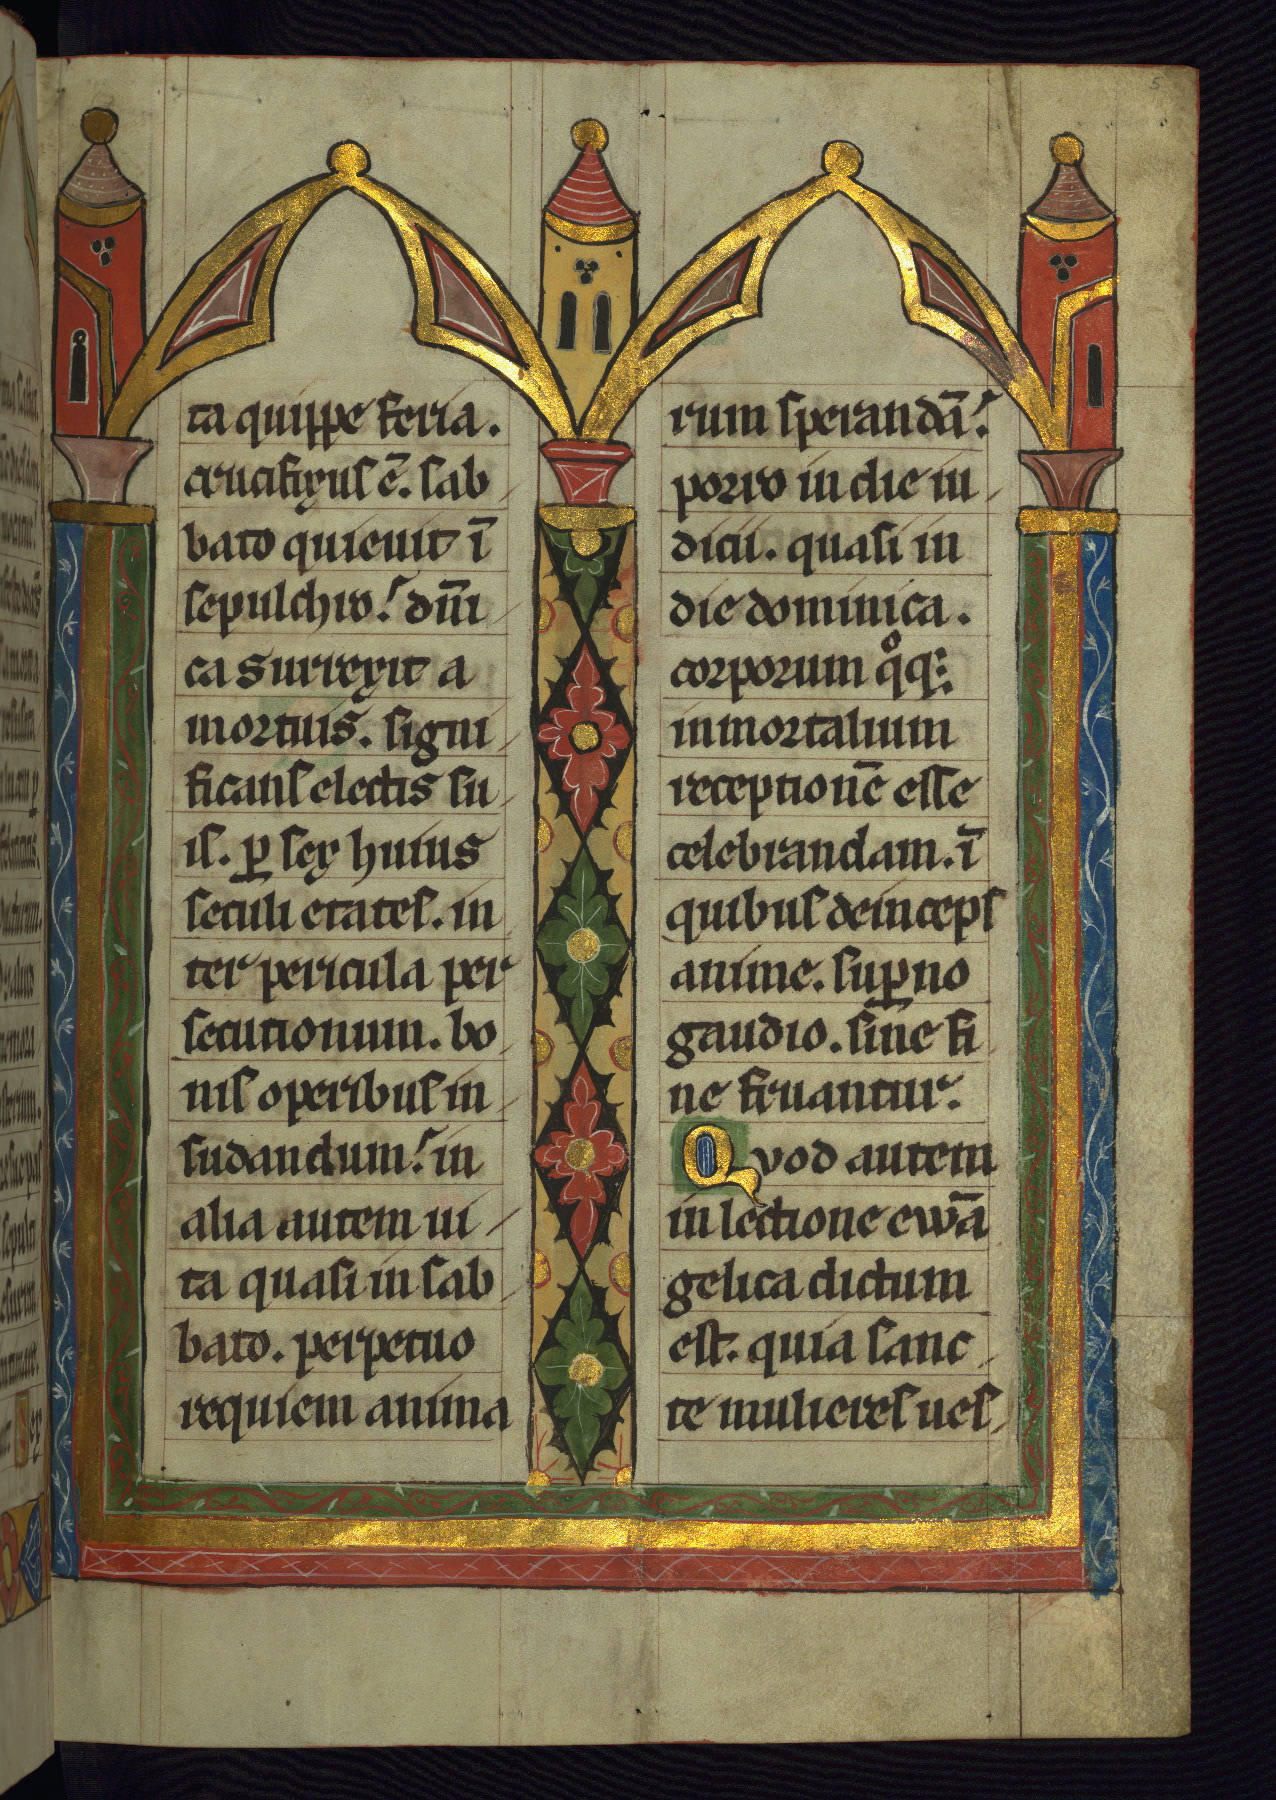 5
ta quippe feria.
crucifixus ē. sab
bato quieuit ī
sepulchro. dn̄i
ca surrexit a
mortuis. signi
ficans electis su
is. ꝑ sex huius
seculi etates. in
ter pericula per
secutionum. bo
nis operibus in
sudandum. in
alia autem ui
ta quasi in sab
bato. perpetuo
requiem anima
rum sperandā.
porro in die iu
dicii. quasi in
die dominica.
corporum qͦq;
inmortalium
receptionē esse
celebrandam. ī
quibus deinceps
anime. suꝑno
gaudio. sine fi
ne fruantur.
Quod autem
in lectione ewā
gelica dictum
est. quia sanc
te mulieres ues